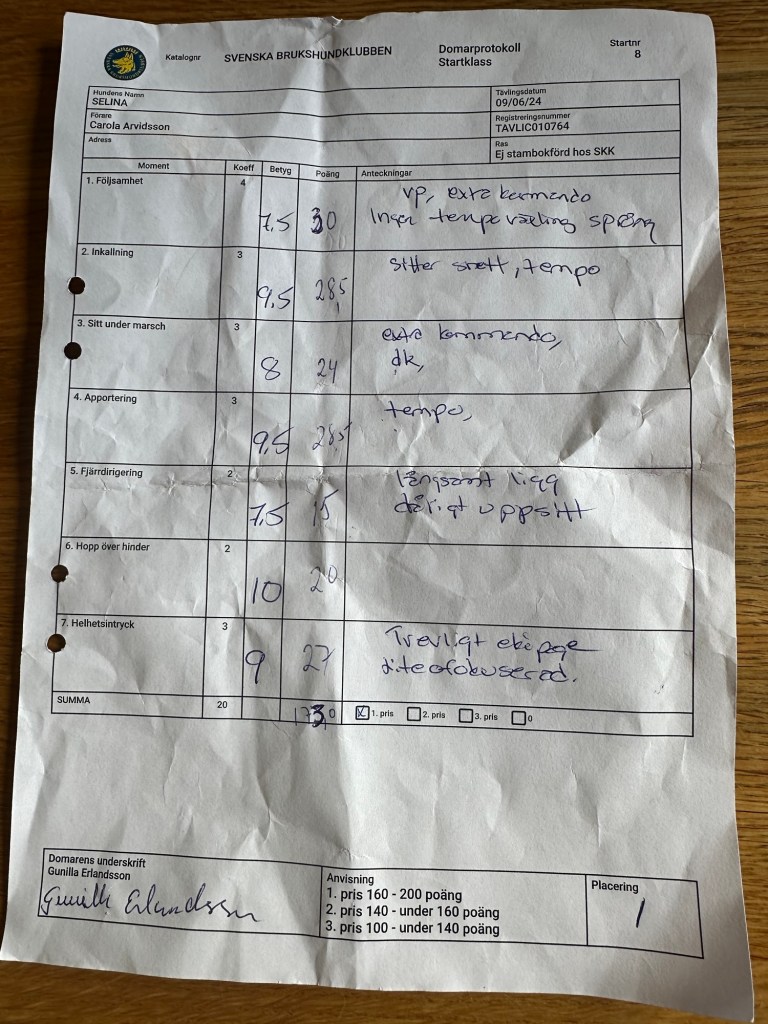 Katalognr
SVENSKA BRUKSHUNDKLUBBEN
Domarprotokoll
Startklass
Startnr
8
Hundens Namn
SELINA
Tävlingsdatum
09/06/24
Förare
Carola Arvidsson
Registreringsnummer
TAVLIC010764
Adress
Ras
Ej stambokförd hos SKK
Moment Koeff Betyg Poäng Anteckningar
1. Följsamhet 4 7,5 30 vp, extra kommando
Ingen tempoväxling språng
2. Inkallning 3 9,5 28,5 sitter snett, tempo
3. Sitt under marsch 3 8 24 extra kommando,
dk,
4. Apportering 3 9,5 28,5 tempo,
5. Fjärrdirigering 2 7,5 15 långsamt ligg
dåligt uppsitt
6. Hopp över hinder 2 10 20
7. Helhetsintryck 3 9 27 Trevligt ekipage
lite ofokuserad.
SUMMA 20 173,0 x 1. pris 2. pris 3. pris 0
Domarens underskrift
Gunilla Erlandsson
Gunilla Erlandsson
Anvisning
1. pris 160 - 200 poäng
2. pris 140 - under 160 poäng
3. pris 100 - under 140 poäng
Placering
1